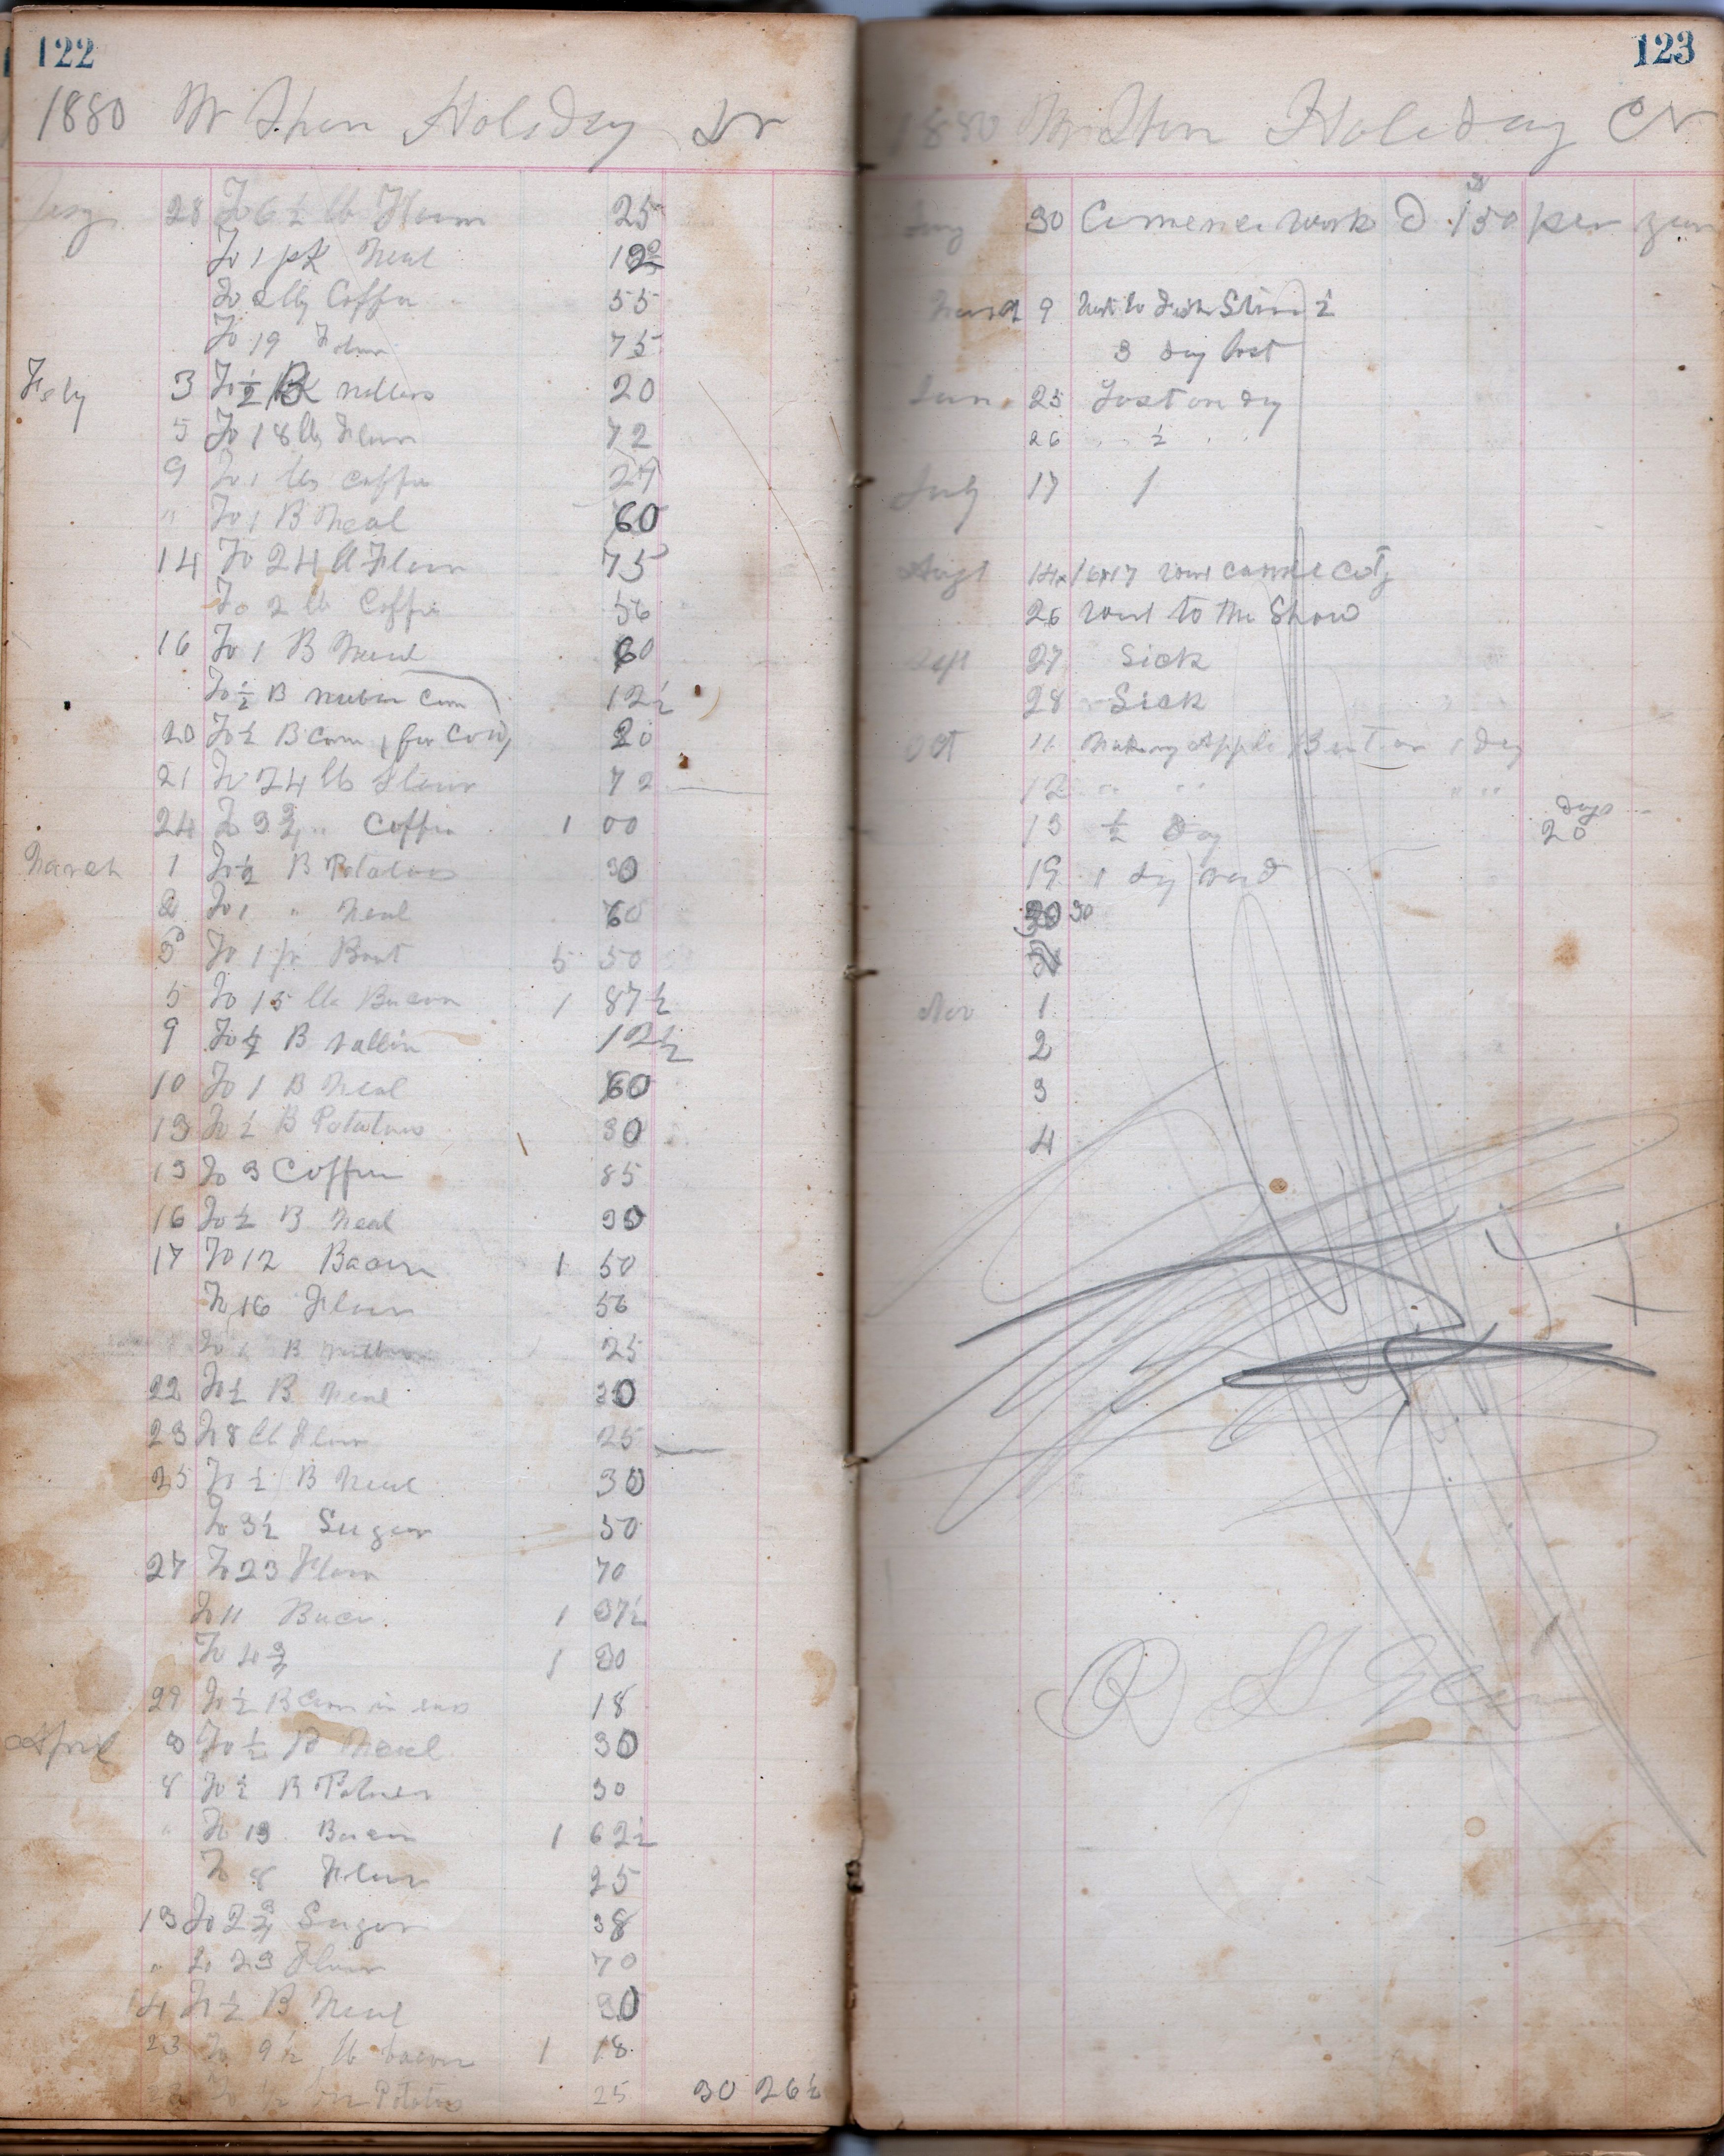 122
1880 Mr Thon Holiday Dr
Jany 28 To 6 ½ lb Flour 25
To 1 pk Meal 12
To 2 lbs Coffee 55
To 19 Flour 75
Feby 3 To ½ B 20
5 To 18 lb Flour 72
9 To 1 lbs Coffee 27
" To 1 B Meal 60
14 To 24 lb Flour 75
To 2 lb Coffe 56
16 To 1 B Meal 60
To ½ B nubin Corn 12½
20 To ½ B Corn (for Cow) 20
21 To 24 lb Flour 72
24 To 3 ¾ " Coffee 1 00
March 1 To ½ B Potatoes 30
2 To 1 " Meal 60
3 To 1 pr Boot 5 50
5 To 15 lbs Bacon 1 87½
9 To ½ B 12½
10 To 1 B Meal 60
13 To ½ B Potatoes 30
13 To 3 Coffee 85
16 To ½ B Meal 30
17 To 12 Bacon 1 50
To 16 Flour 56
B 25
22 To ½ B Meal 30
23 To 8 lb Flour 25
25 To ½ B Meal 30
To 3½ Sugar 50
27 To 23 Flour 70
To 11 Bacon 1 37½
To 4 ¾ 1 30
29 To ½ B Corn in ears 18
April 3 To ½ B Meal 30
8 To ½ B 30
" To 13 Bacon 1 62½
To 8 Flour 25
13 To 2 ¾ Sugar 38
" To 23 Flour 70
14 To ½ B Meal 30
23 To 9½ lb bacon 1 18
To ½ Potatoes 25 30 26½
123
1880 Mr Thon Holiday Cr
Jany 30 Comence work @ 150 per year
March 9 Went to ½
3 day lost
June 25 Lost one day
26 " ½ "
July 17 1
Augt 14 16 & 17 went Co
26 went to the Show
Sept 27 Sick
28 Sick
Oct 11 Making Apple Butter 1 day
12 " " " "
13 ½ Day
days
20
19 1 day
30 30
31
Nov 1
2
3
4